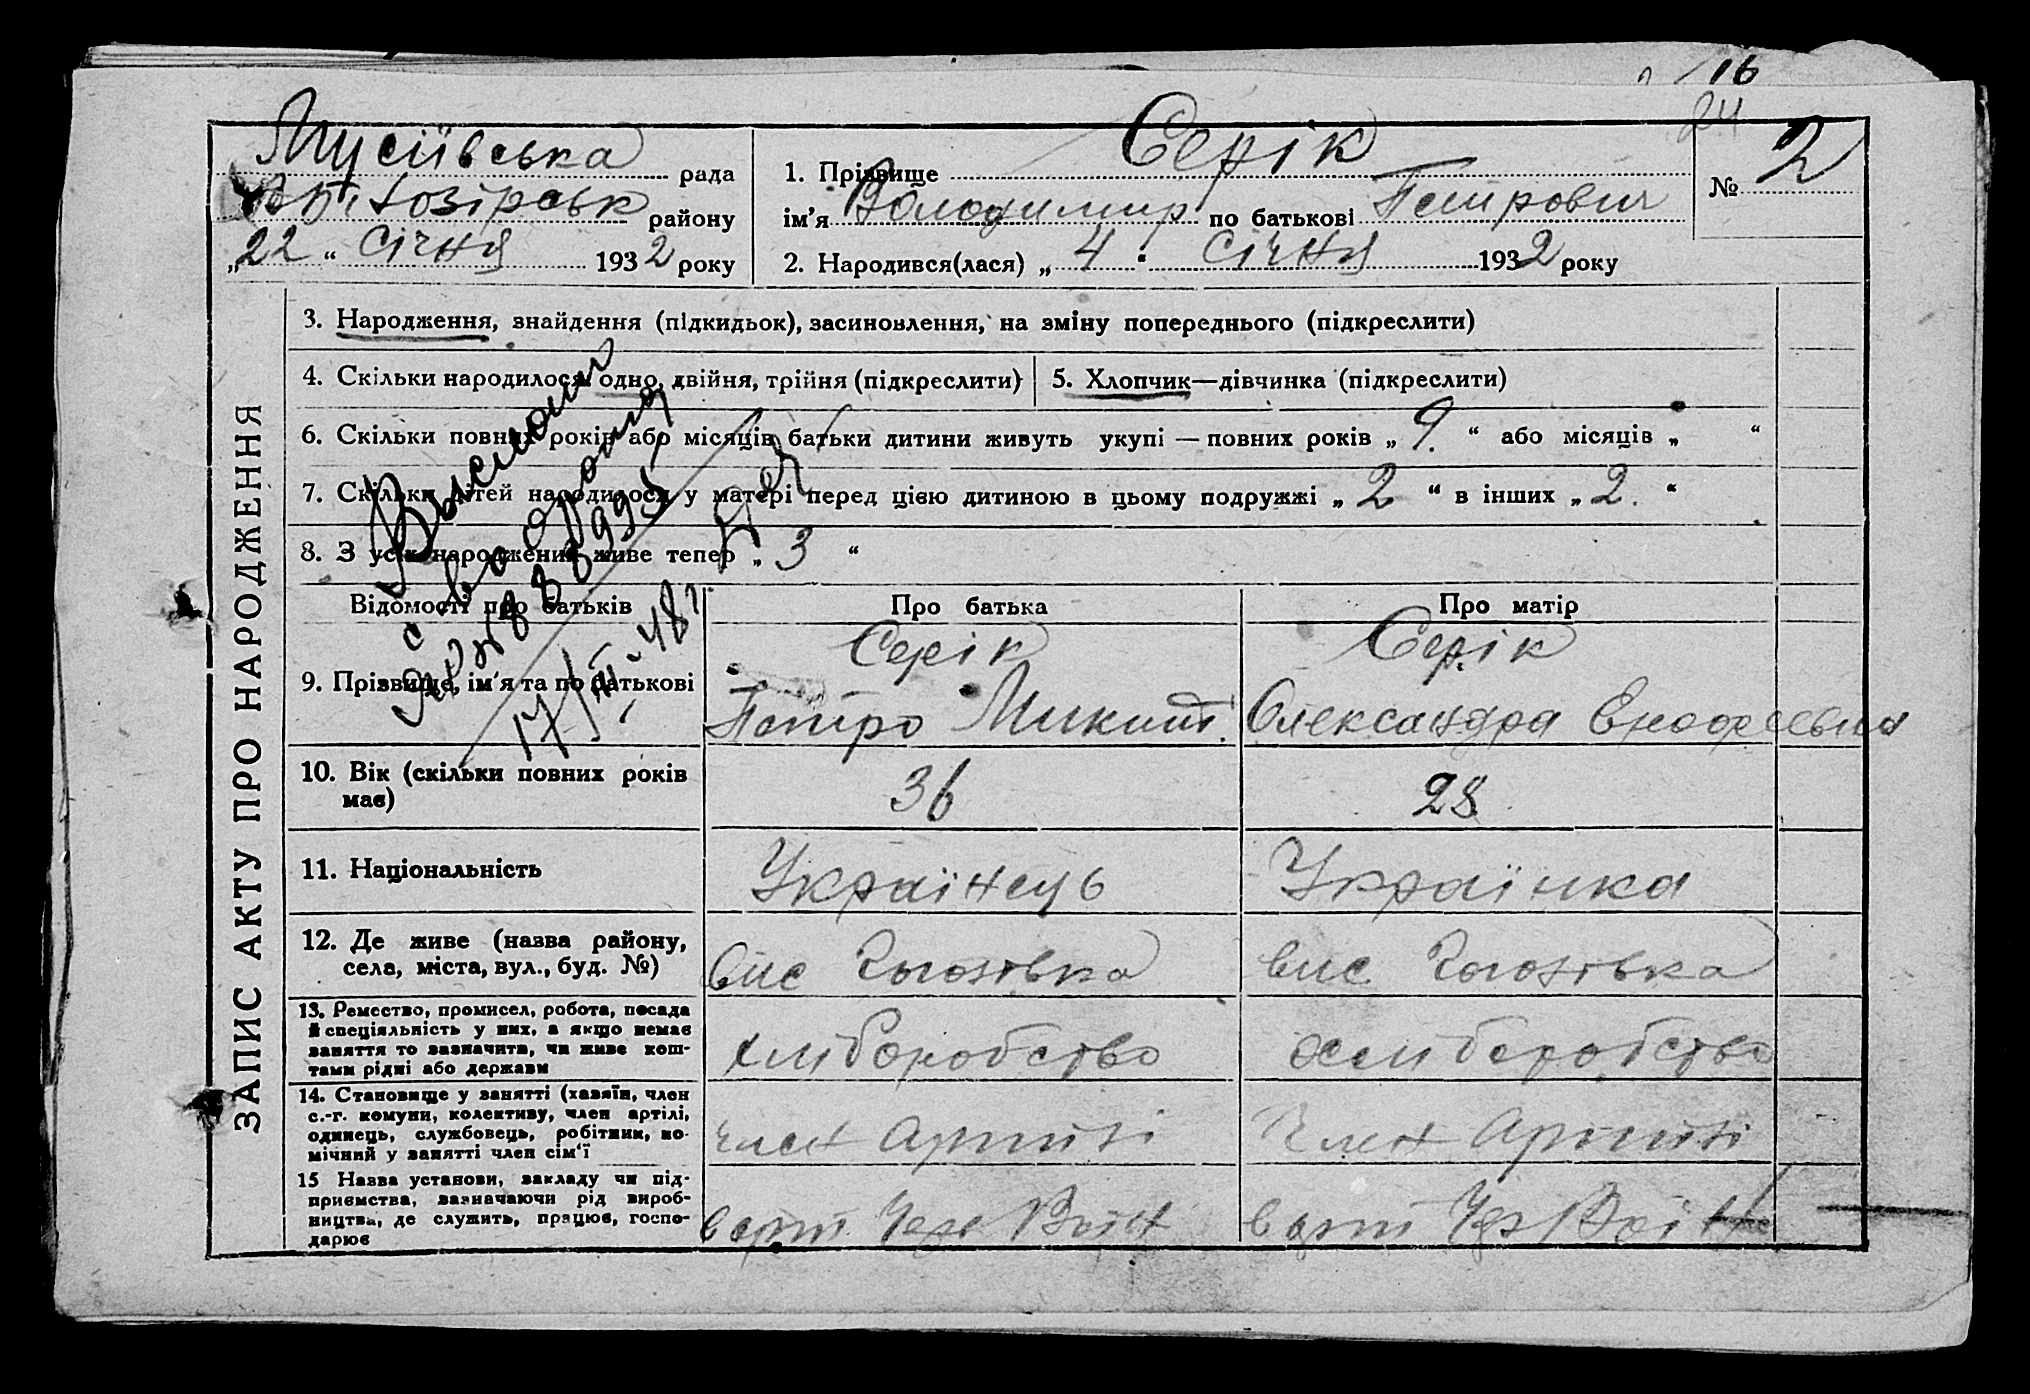 16
24
Мусіївська рада
району
„22“ Січня 1932 року
1. Прізвище Серік
ім'я Володимир по батькові Петрович
№ 2
2. Народився(лася) „4“ Січня 1932 року
ЗАПИС АКТУ ПРО НАРОДЖЕННЯ
3. Народження, знайдення (підкидьок), засиновлення, на зміну попереднього (підкреслити)
4. Скільки народилося: одно, двійня, трійня (підкреслити)
5. Хлопчик—дівчинка (підкреслити)
6. Скільки повних років або місяців батьки дитини живуть укупі — повних років „9.“ або місяців „ “
7. Скільки дітей народилося у матері перед цією дитиною в цьому подружжі „2“ в інших „2.“
8. З усіх народжених живе тепер „3“
Відомості про батьків
Про батька
Про матір
9. Прізвище, ім'я та по батькові
Серік
Петро Микит.
Серік
Олександра
10. Вік (скільки повних років
має)
36
28
11. Національність
Українець
Українка
12. Де живе (назва району,
села, міста, вул., буд. №)
вис
вис
13. Ремество, промисел, робота, посада
й спеціяльність у них, а якщо немає
заняття то зазначити, чи живе кош-
тами рідні або держави
хліборобство
хліборобство
14. Становище у занятті (хазяїн, член
с.-г. комуни, колективу, член артілі,
одинець, службовець, робітник, по-
мічний у занятті член сім'ї
член Артілі
Член Артілі
15 Назва установи, закладу чи під-
приємства, зазначаючи рід вироб-
ництва, де служить, працює, госпо-
дарює
в арт.
в арт